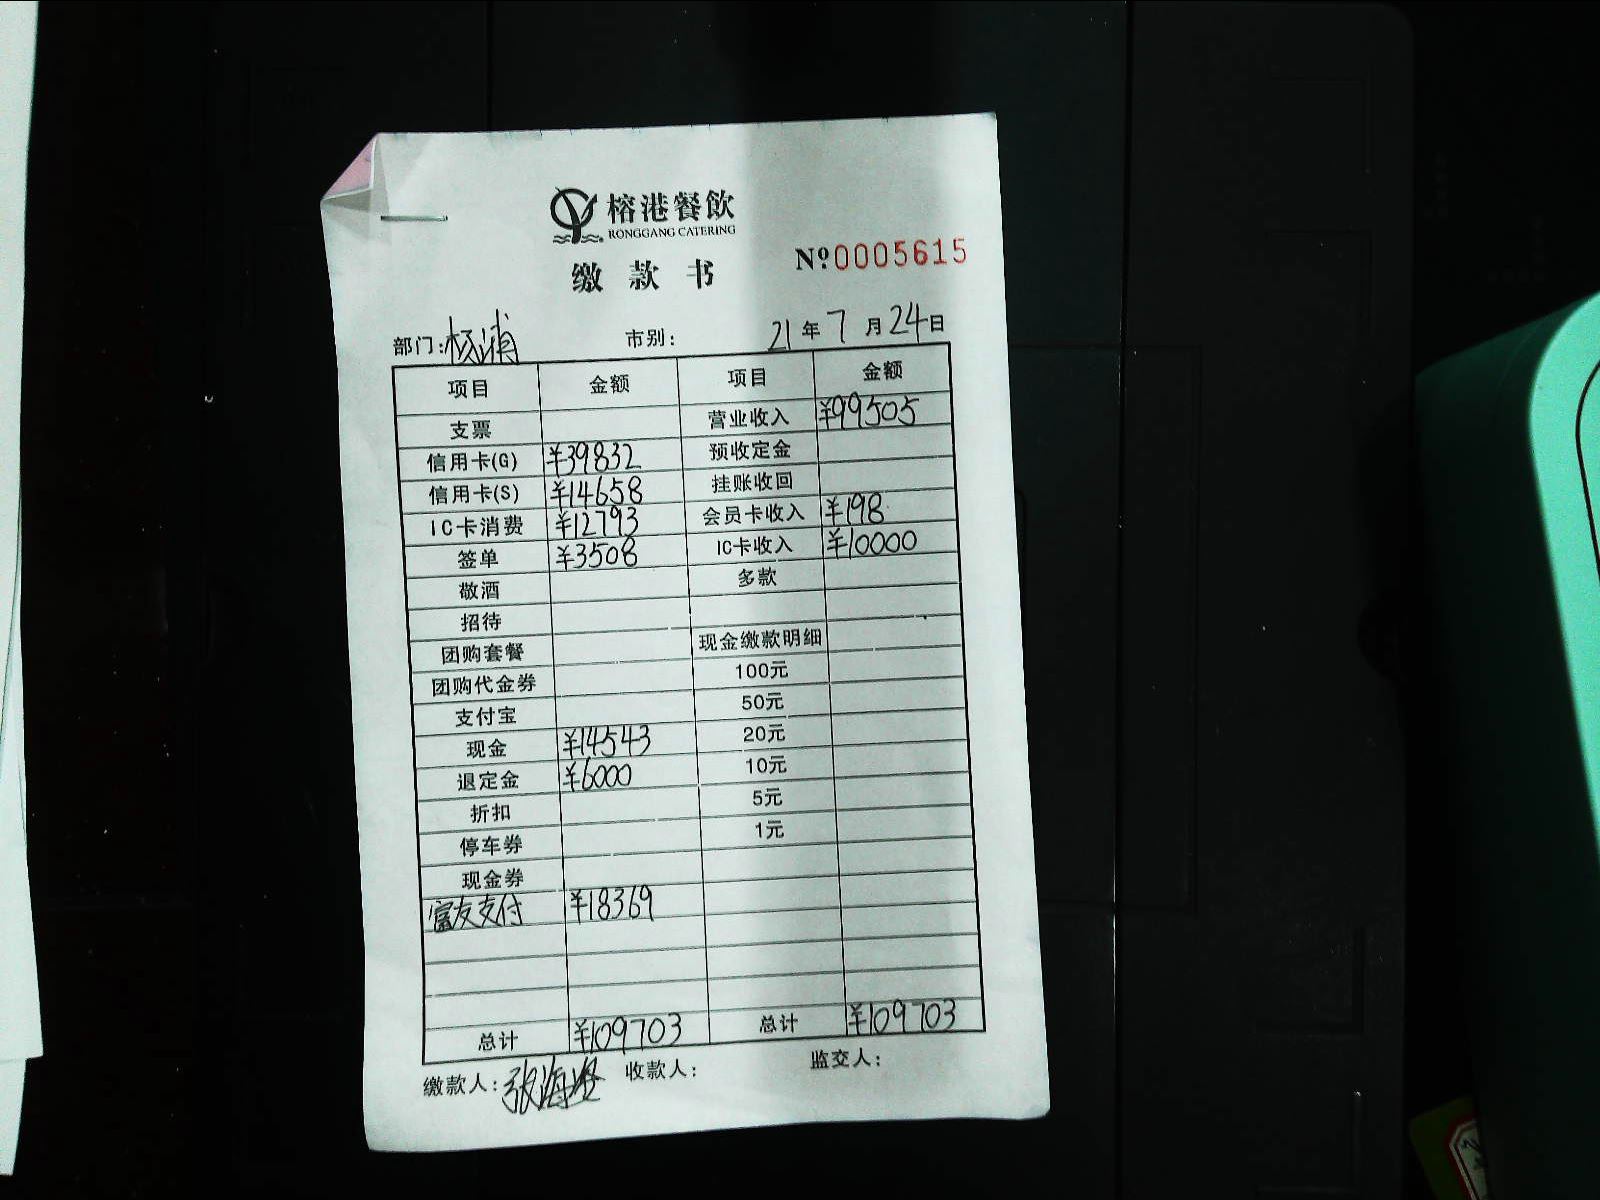 榕港餐飲
RONGGANG CATERING
缴款书
Nº0005615
部门:杨浦 市别: 21年7月24日
项目 金额 项目 金额
支票 营业收入 ¥99505
信用卡(G) ¥39832 预收定金
信用卡(S) ¥14658 挂账收回
IC卡消费 ¥12793 会员卡收入 ¥198
签单 ¥3508 IC卡收入 ¥10000
敬酒 多款
招待
团购套餐 现金缴款明细
团购代金券 100元
支付宝 50元
现金 ¥14543 20元
退定金 ¥6000 10元
折扣 5元
停车券 1元
现金券
富友支付 ¥18369
总计 ¥109703 总计 ¥109703
缴款人:张海 收款人: 监交人: